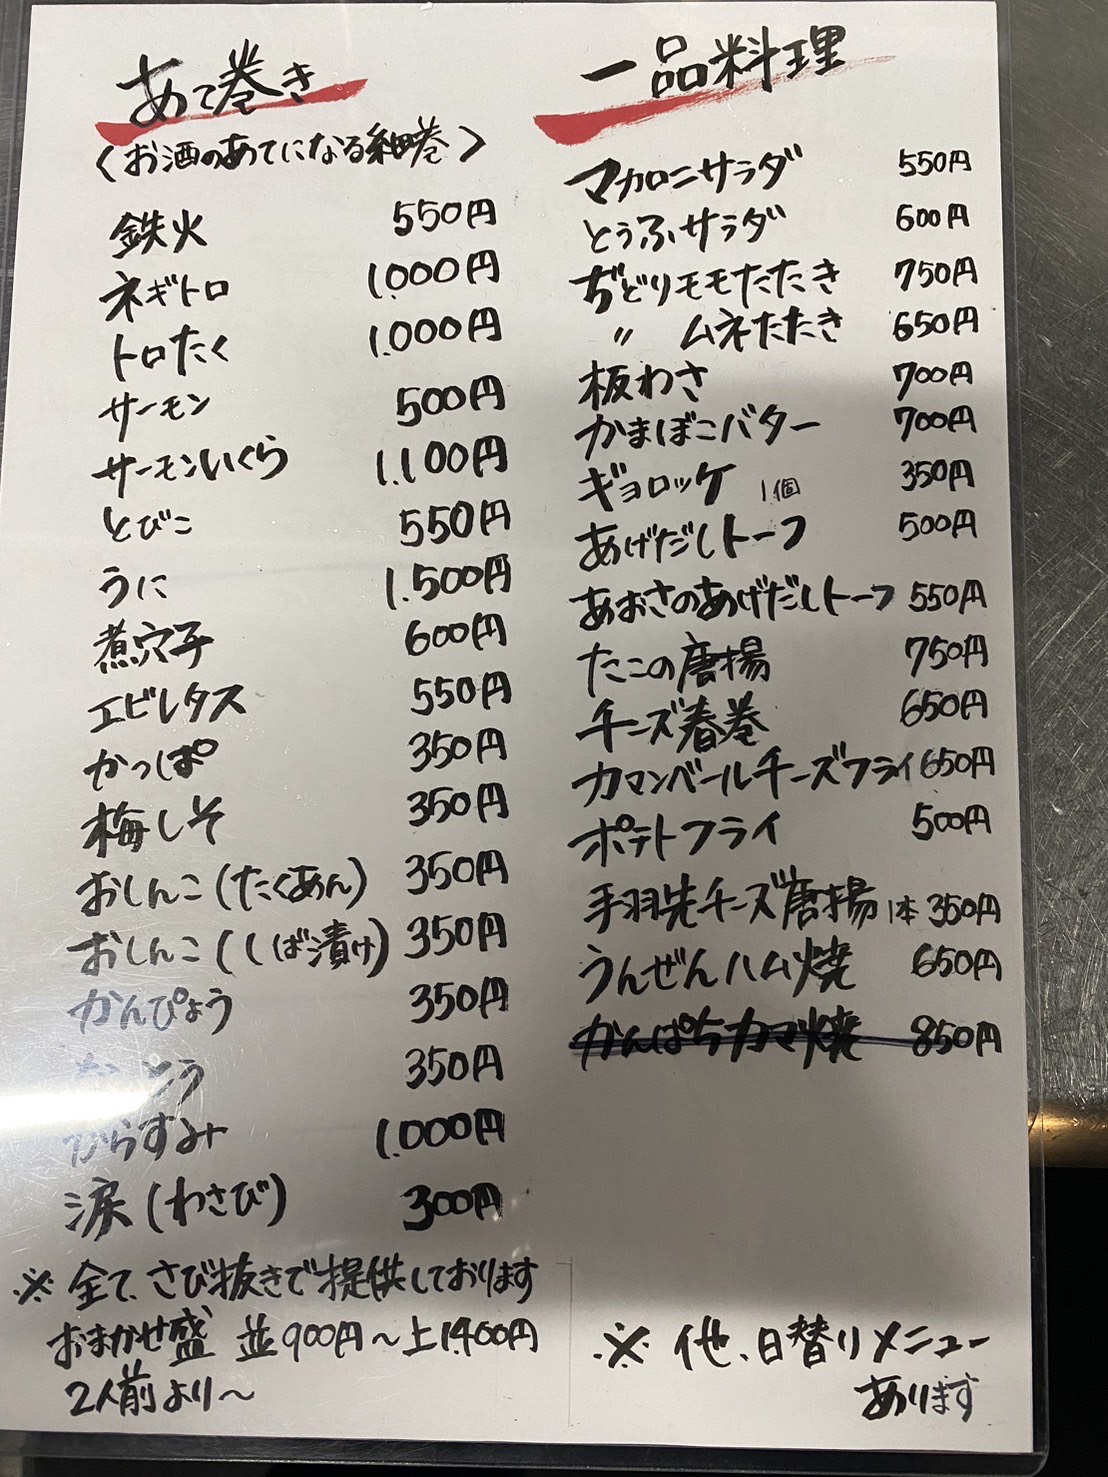 あて巻き
〈お酒のあてになる細巻〉
鉄火 550円
ネギトロ 1.000円
トロたく 1.000円
サーモン 500円
サーモンいくら 1.100円
とびこ 550円
うに 1.500円
煮穴子 600円
エビレタス 550円
かっぱ 350円
梅しそ 350円
おしんこ(たくあん) 350円
おしんこ(しば漬け) 350円
かんぴょう 350円
とう 350円
からすみ 1.000円
涙(わさび) 300円
※全て、さび抜きで提供しております
おまかせ盛 並900円〜上1.400円
2人前より〜
一品料理
マカロニサラダ 550円
とうふサラダ 600円
ぢどりモモたたき 750円
〃 ムネたたき 650円
板わさ 700円
かまぼこバター 700円
ギョロッケ 1個 350円
あげだしトーフ 500円
あおさのあげだしトーフ 550円
たこの唐揚 750円
チーズ春巻 650円
カマンベールチーズフライ 650円
ポテトフライ 500円
手羽先チーズ唐揚 1本 350円
うんぜんハム焼 650円
かんぱちカマ焼 850円
※他、日替りメニュー
あります